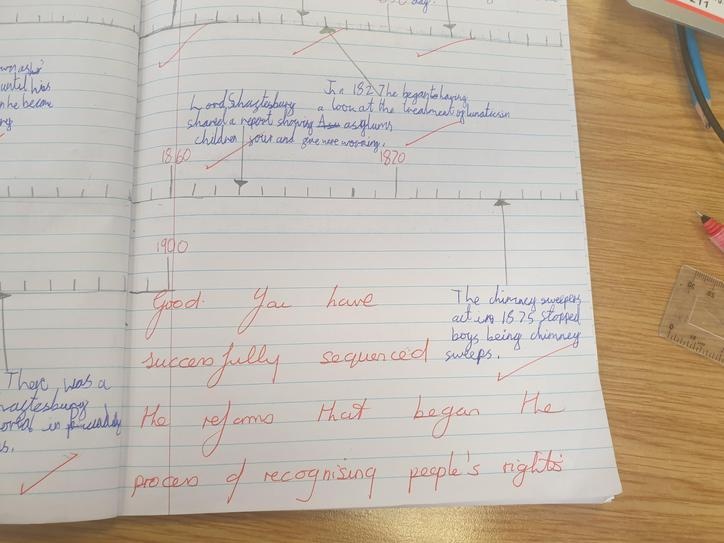 day.
until his
he became
In 1827 he began to having
a look at the treatment of lunatics in
asylums
Lord Shaftesbury
shared a report showing
children four and five were working.
1860
1870
1900
Good. You have
successfully sequenced
the reforms that began the
process of recognising people's rights
The chimney sweepers
act in 1875 stopped
boys being chimney
sweeps.
There was a